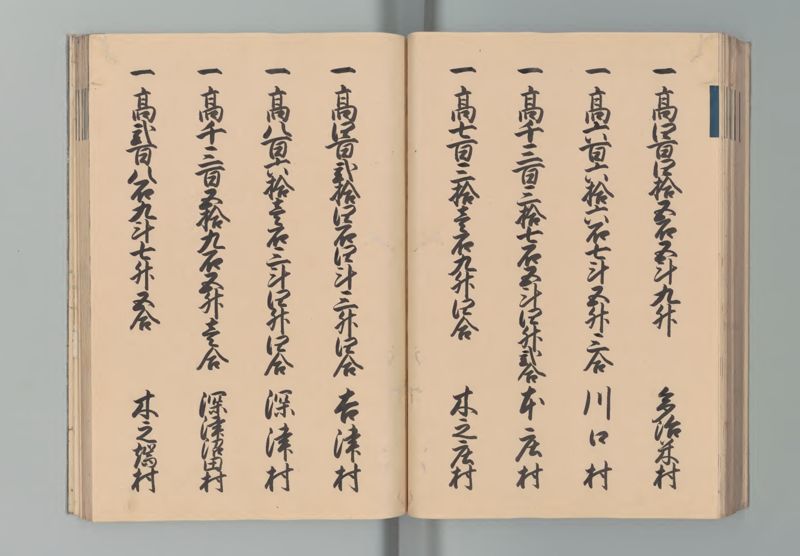 一高四百四拾五石五斗九升 多治米村
一高六百六拾六石七斗五升三合 川口村
一高千三百三拾七石五斗四升弐合 本庄村
一高七百三拾壱石九升四合 木之庄村
一高四百弐拾四石四斗三升四合 吉津村
一高八百六拾壱石三斗四升四合 深津村
一高千三百五拾九石五升壱合 深津沼田村
一高弐百八石九斗七升五合 木之端村